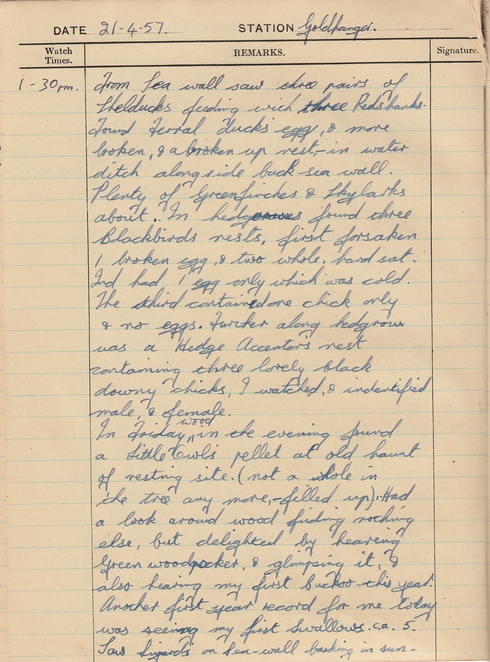 DATE 21-4-57. STATION Goldhanger.
Watch Times. REMARKS. Signature.
1-30pm. From Sea wall saw three pairs of
Shelducks feeding with three Redshanks.
Found Ferral ducks egg, & more
broken, & a broken up nest, in water
ditch alongside back sea wall.
Plenty of Greenfinches & Skylarks
about. In hedgerows found three
Blackbirds nests, first forsaken
1 broken egg, & two whole, hard sat.
2nd had 1 egg only which was cold.
The third contained one chick only
& no eggs. Further along hedgrow
was a Hedge Accentors nest
containing three lovely black
downy chicks, I watched, & indentified
male, & female.
In Friday wood, in the evening found
a Little Owls pellet at old haunt
of resting site. (not a whole in
the tree any more,-filled up). Had
a look around wood finding nothing
else, but delighted by hearing
Green woodpecker, & glimpsing it, &
also hearing my first Cuckoo this year.
Another first year record for me today
was seeing my first Swallows. ca. 5.
Saw lizards on Sea-wall basking in sun.-